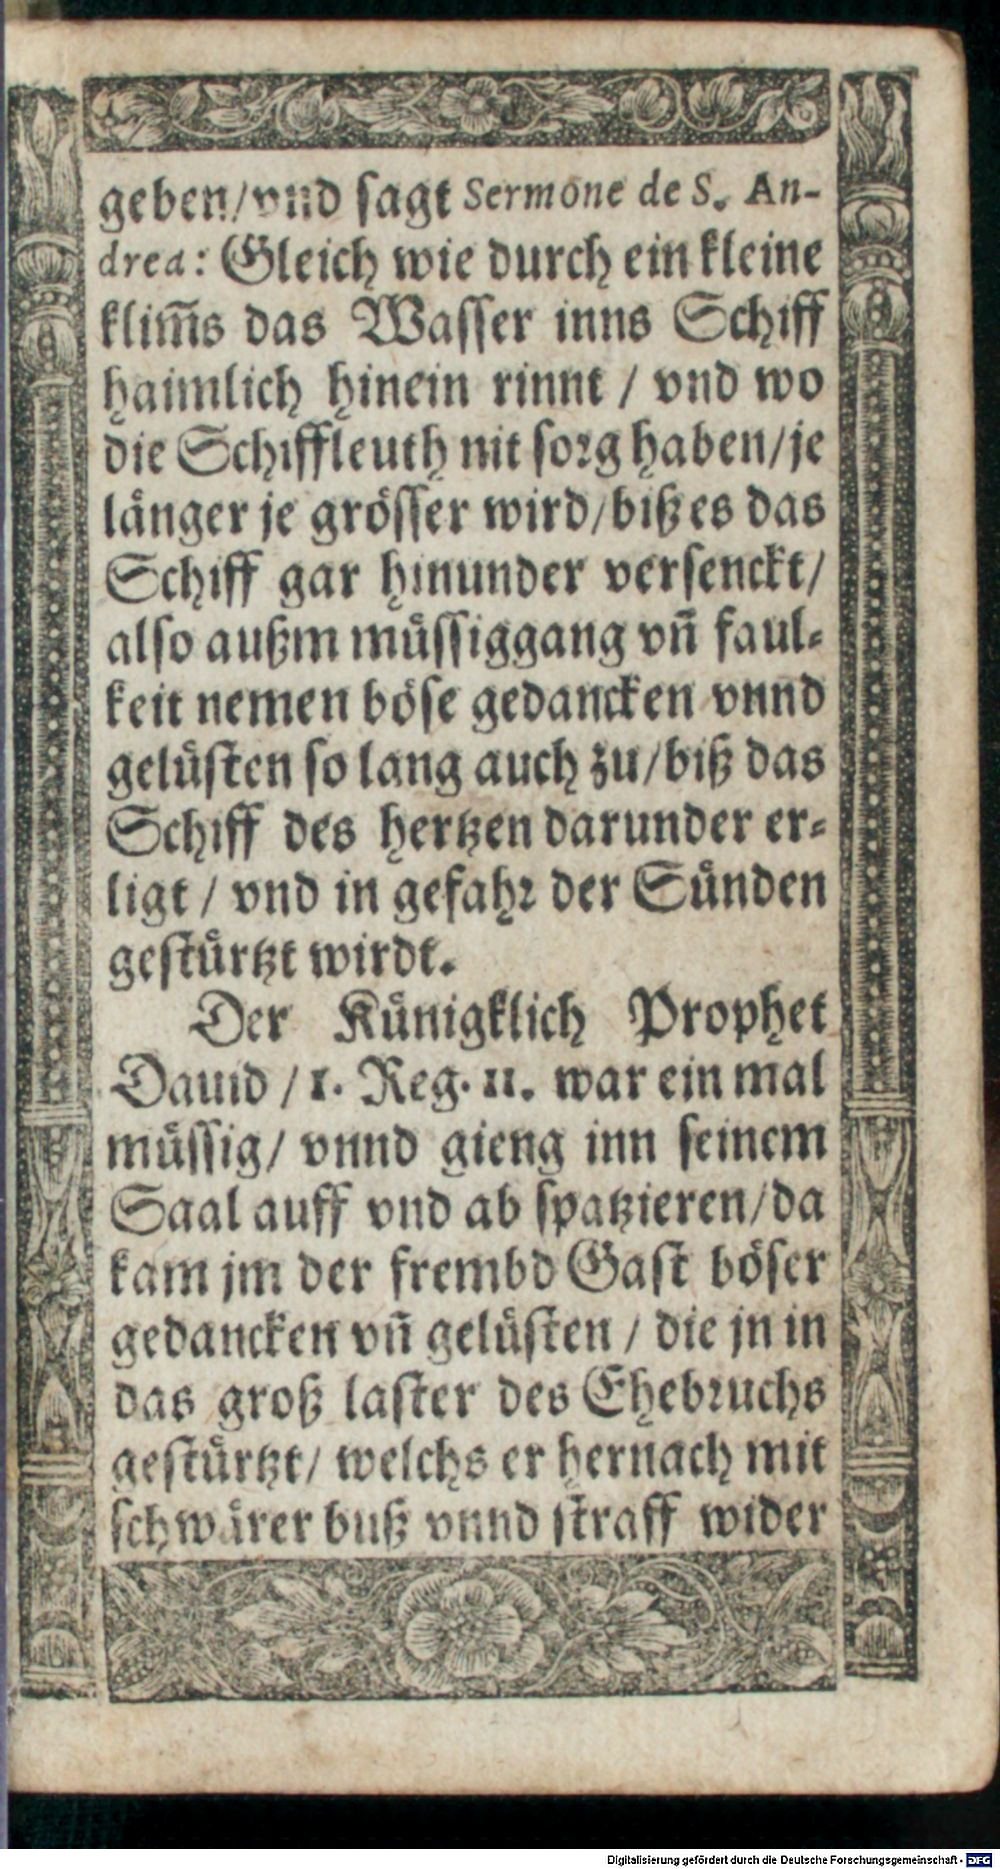 geben/vnd sagt Sermone de S. An-
drea: Gleich wie durch ein kleine
klim̃s das Wasser inns Schiff
haimlich hinein rinnt / vnd wo
die Schiffleuth nit sorg haben/je
länger je grösser wird/biß es das
Schiff gar hinunder versenckt/
also außm müssiggang vñ faul-
keit nemen böse gedancken vnnd
gelüsten so lang auch zu/biß das
Schiff des hertzen darunder er-
ligt / vnd in gefahr der Sünden
gestürtzt wirdt.
Der Künigklich Prophet
Dauid / 1. Reg. 11. war ein mal
müssig/ vnnd gieng inn seinem
Saal auff vnd ab spatzieren/da
kam jm der frembd Gast böser
gedancken vñ gelüsten / die jn in
das groß laster des Ehebruchs
gestürtzt/ welchs er hernach mit
schwärer buß vnnd straff wider
Digitalisierung gefördert durch die Deutsche Forschungsgemeinschaft - DFG